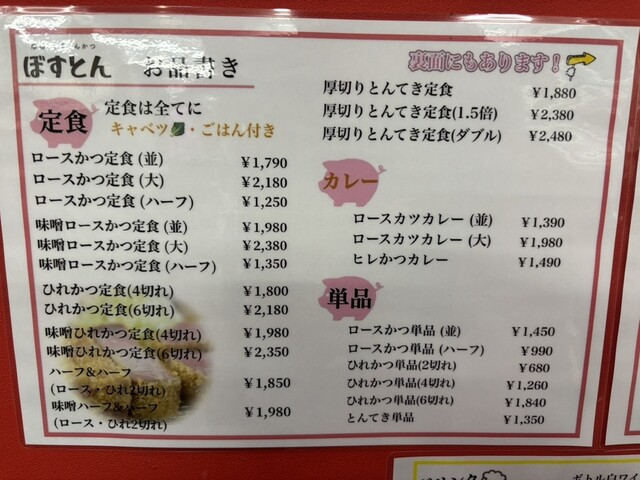 ぼすとん お品書き
裏面にもあります!
定食
定食は全てに
キャベツ・ごはん付き
ロースかつ定食(並) ¥1,790
ロースかつ定食(大) ¥2,180
ロースかつ定食(ハーフ) ¥1,250
味噌ロースかつ定食(並) ¥1,980
味噌ロースかつ定食(大) ¥2,380
味噌ロースかつ定食(ハーフ) ¥1,350
ひれかつ定食(4切れ) ¥1,800
ひれかつ定食(6切れ) ¥2,180
味噌ひれかつ定食(4切れ) ¥1,980
味噌ひれかつ定食(6切れ) ¥2,350
ハーフ&ハーフ
(ロース・ひれ2切れ) ¥1,850
味噌ハーフ&ハーフ
(ロース・ひれ2切れ) ¥1,980
厚切りとんてき定食 ¥1,880
厚切りとんてき定食(1.5倍) ¥2,380
厚切りとんてき定食(ダブル) ¥2,480
カレー
ロースカツカレー(並) ¥1,390
ロースカツカレー(大) ¥1,980
ヒレかつカレー ¥1,490
単品
ロースかつ単品(並) ¥1,450
ロースかつ単品(ハーフ) ¥990
ひれかつ単品(2切れ) ¥680
ひれかつ単品(4切れ) ¥1,260
ひれかつ単品(6切れ) ¥1,840
とんてき単品 ¥1,350